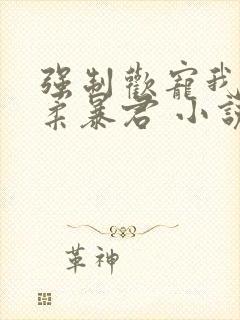 强制歡寵我
柔暴君 小說
革神